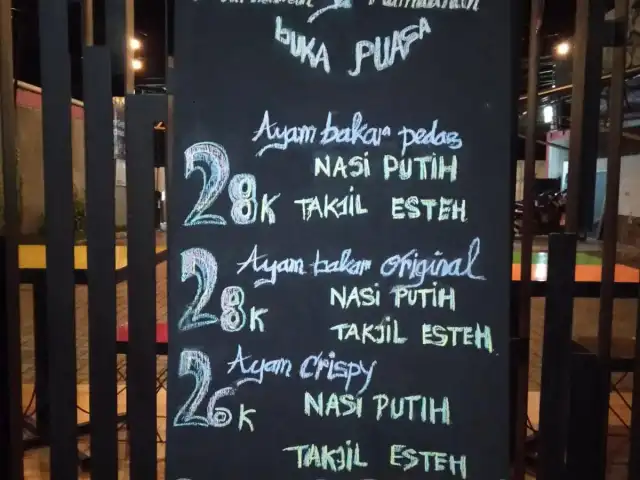 Ramadhan
BUKA PUASA
Ayam bakar pedas
28K NASI PUTIH
TAKJIL ESTEH
Ayam bakar original
28K NASI PUTIH
TAKJIL ESTEH
Ayam Crispy
26K NASI PUTIH
TAKJIL ESTEH